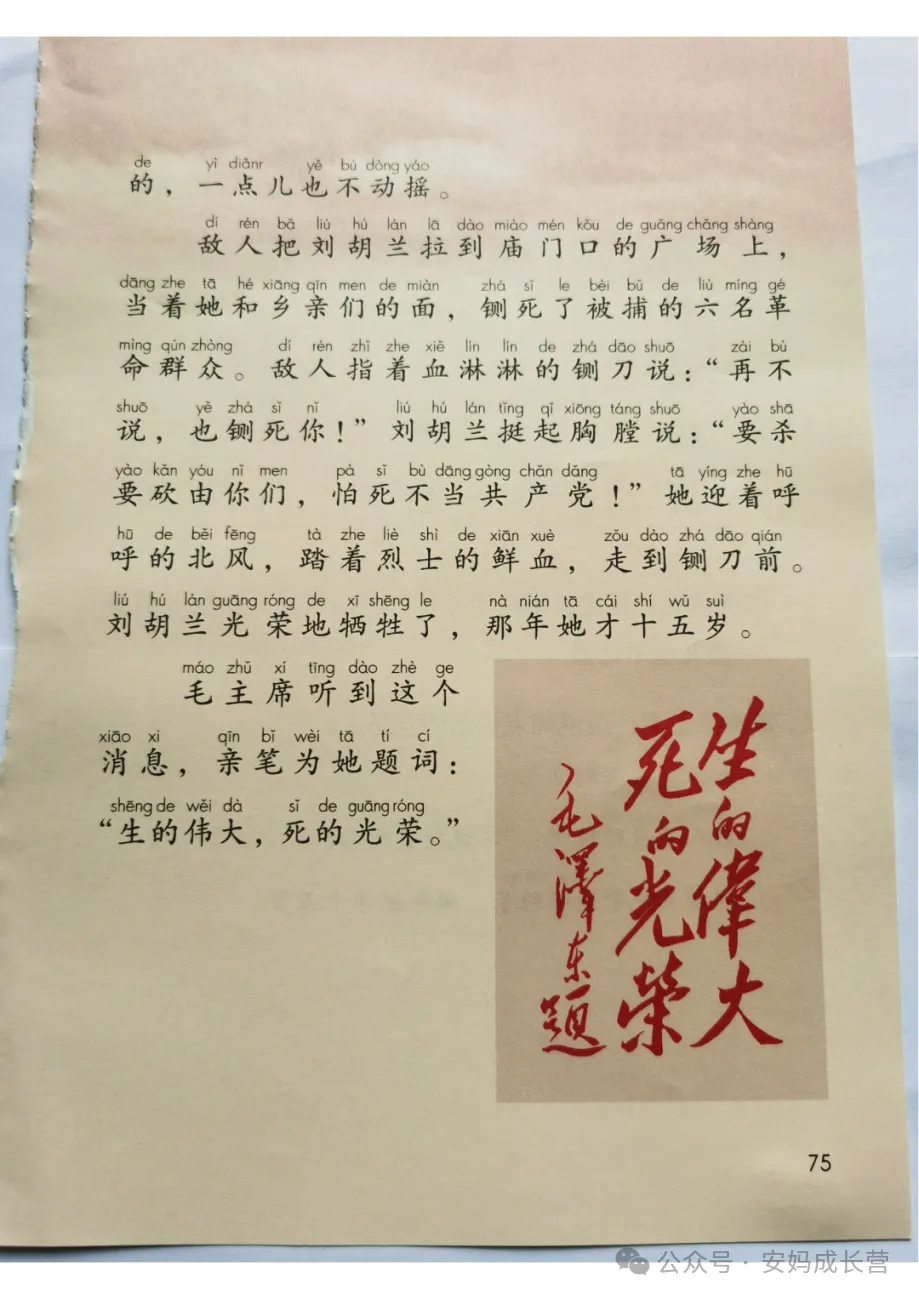 de yì diǎnr yě bú dòng yáo
的，一点儿也不动摇。
dí rén bǎ liú hú lán lā dào miào mén kǒu de guǎng chǎng shàng
敌人把刘胡兰拉到庙门口的广场上，
dāng zhe tā hé xiāng qīn men de miàn zhá sǐ le bèi bǔ de liù míng gé
当着她和乡亲们的面，铡死了被捕的六名革
mìng qún zhòng dí rén zhǐ zhe xiě lín lín de zhá dāo shuō zài bù
命群众。敌人指着血淋淋的铡刀说：“再不
shuō yě zhá sǐ nǐ liú hú lán tǐng qǐ xiōng táng shuō yào shā
说，也铡死你！”刘胡兰挺起胸膛说：“要杀
yào kǎn yóu nǐ men pà sǐ bù dāng gòng chǎn dǎng tā yíng zhe hū
要砍由你们，怕死不当共产党！”她迎着呼
hū de běi fēng tà zhe liè shì de xiān xuè zǒu dào zhá dāo qián
呼的北风，踏着烈士的鲜血，走到铡刀前。
liú hú lán guāng róng de xī shēng le nà nián tā cái shí wǔ suì
刘胡兰光荣地牺牲了，那年她才十五岁。
máo zhǔ xí tīng dào zhè ge
毛主席听到这个
xiāo xi qīn bǐ wèi tā tí cí
消息，亲笔为她题词：
shēng de wěi dà sǐ de guāng róng
“生的伟大，死的光荣。”
生的偉大
死的光榮
毛澤东題
75
公众号·安妈成长营